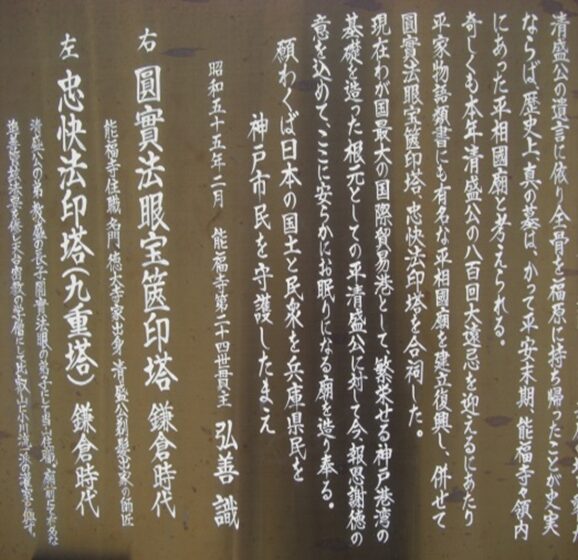 清盛公の遺言に依り全骨を福原に持ち帰ったことが史実
ならば、歴史上、真の墓は、かつて平安末期、能福寺々領内
にあった平相國廟と考えられる。
奇しくも本年、清盛公の八百回大遠忌を迎えるにあたり
平家物語類書にも有名な平相國廟を建立復興し、併せて
圓實法眼宝篋印塔、忠快法印塔を合祠した。
現在わが国最大の国際貿易港として、繁栄せる神戸港湾の
基礎を造った根元としての平清盛公に対して今、報恩謝徳の
意を込めて、ここに安らかにお眠りになる廟を造り奉る。
願わくば日本の国土と民衆を兵庫県民を
神戸市民を守護したまえ
昭和五十五年二月 能福寺第二十四世貫主 弘善 識
右 圓實法眼宝篋印塔 鎌倉時代
能福寺住職 名門 徳大寺家出身 清盛公剃髪出家の師匠
左 忠快法印塔(九重塔) 鎌倉時代
清盛公の弟、教盛の長子 圓實法眼の弟子にて当寺住職